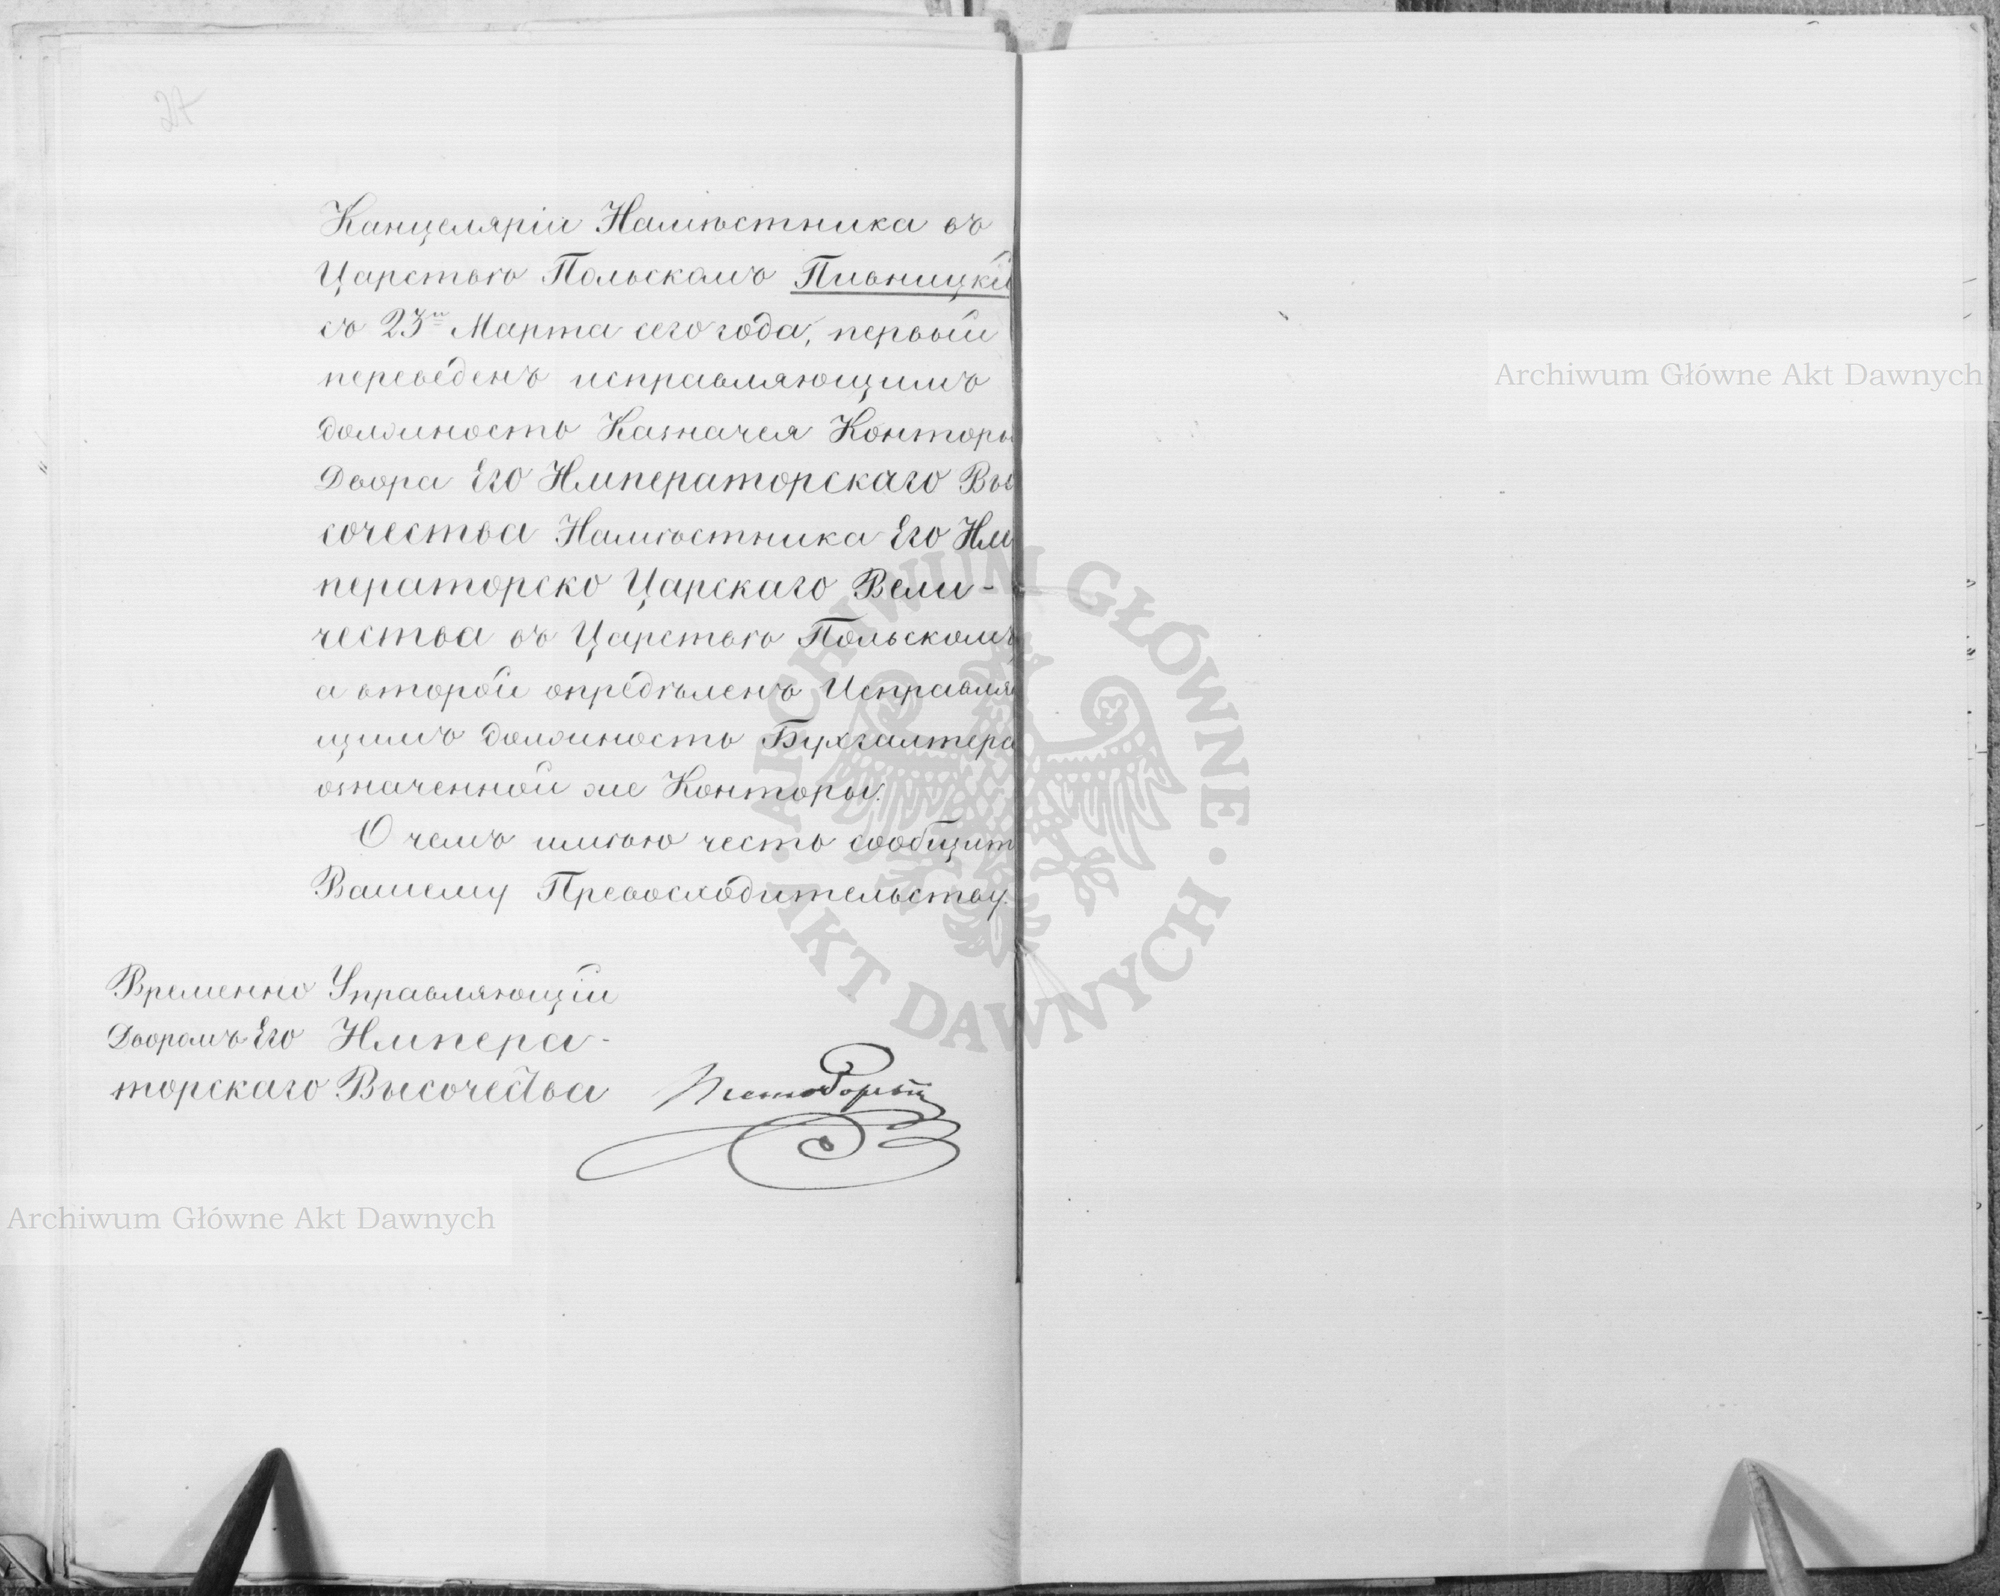 27
Канцеляріи Намѣстника въ
Царствѣ Польскомъ Пивницкі
съ 23го Марта сего года, первый
переведенъ исправляющимъ
должность Казначея Конторы
Двора Его Императорскаго Вы
сочества Намѣстника Его Им
ператорско Царскаго Вели-
чества въ Царствѣ Польскомъ
а второй опредѣленъ Исправля
щимъ должность Бухгалтера
означенной же Конторы.
О чемъ имѣю честь сообщит
Вашему Превосходительству.
Временно Управляющій
Дворомъ Его Импера-
торскаго Высочества
Archiwum Główne Akt Dawnych
Archiwum Główne Akt Dawnych
ARCHIWUM GŁÓWNE · AKT DAWNYCH ·